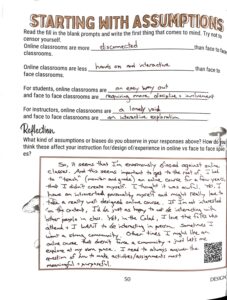 STARTING WITH ASSUMPTIONS
Read the fill in the blank prompts and write the first thing that comes to mind. Try not to
censor yourself.
Online classrooms are more disconnected than face to face
classrooms.
Online classrooms are less hands on and interactive than face to face
classrooms.
For students, online classrooms are an easy way out
and face to face classrooms are requiring more discipline + involvement
For instructors, online classrooms are a lonely void
and face to face classrooms are an interactive exploration
Reflection
What kind of assumptions or biases do you observe in your responses above? How do you
think these affect your instruction/design of/experience in online vs face to face spac-
es?
So, it seems that I'm enormously biased against online
classes. And this seems important to get to the root of. I had
to "teach" (monitor and grade) an online course for a few years
that I didn't create myself. I thought it was awful. Yet, I
have an introverted personality myself and might really like to
take a really well designed online course. If I'm interested
in the content, I'd do just as happy to not do interacting with
other people in class. Yet, in the Collab, I love the f2fs who
attend + I want to be interacting in person. Sometimes I
want a class community. Other times, I might like an
online course that doesn't force a community + just lets me
explore at my own pace. I need to always explore the
question of how to make activities/assignments most
meaningful + purposeful.
50
DESIGN